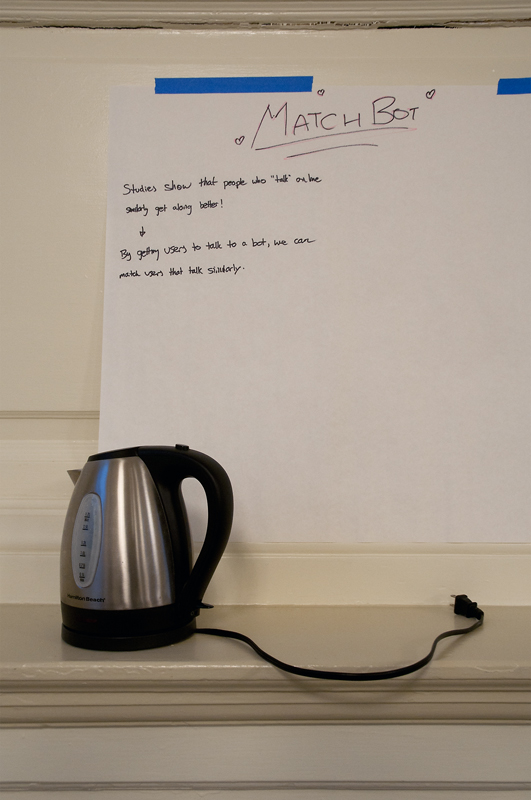 MATCH BOT
Studies show that people who "talk" online
similarly get along better!
By getting users to talk to a bot, we can
match users that talk similarly.
Hamilton Beach